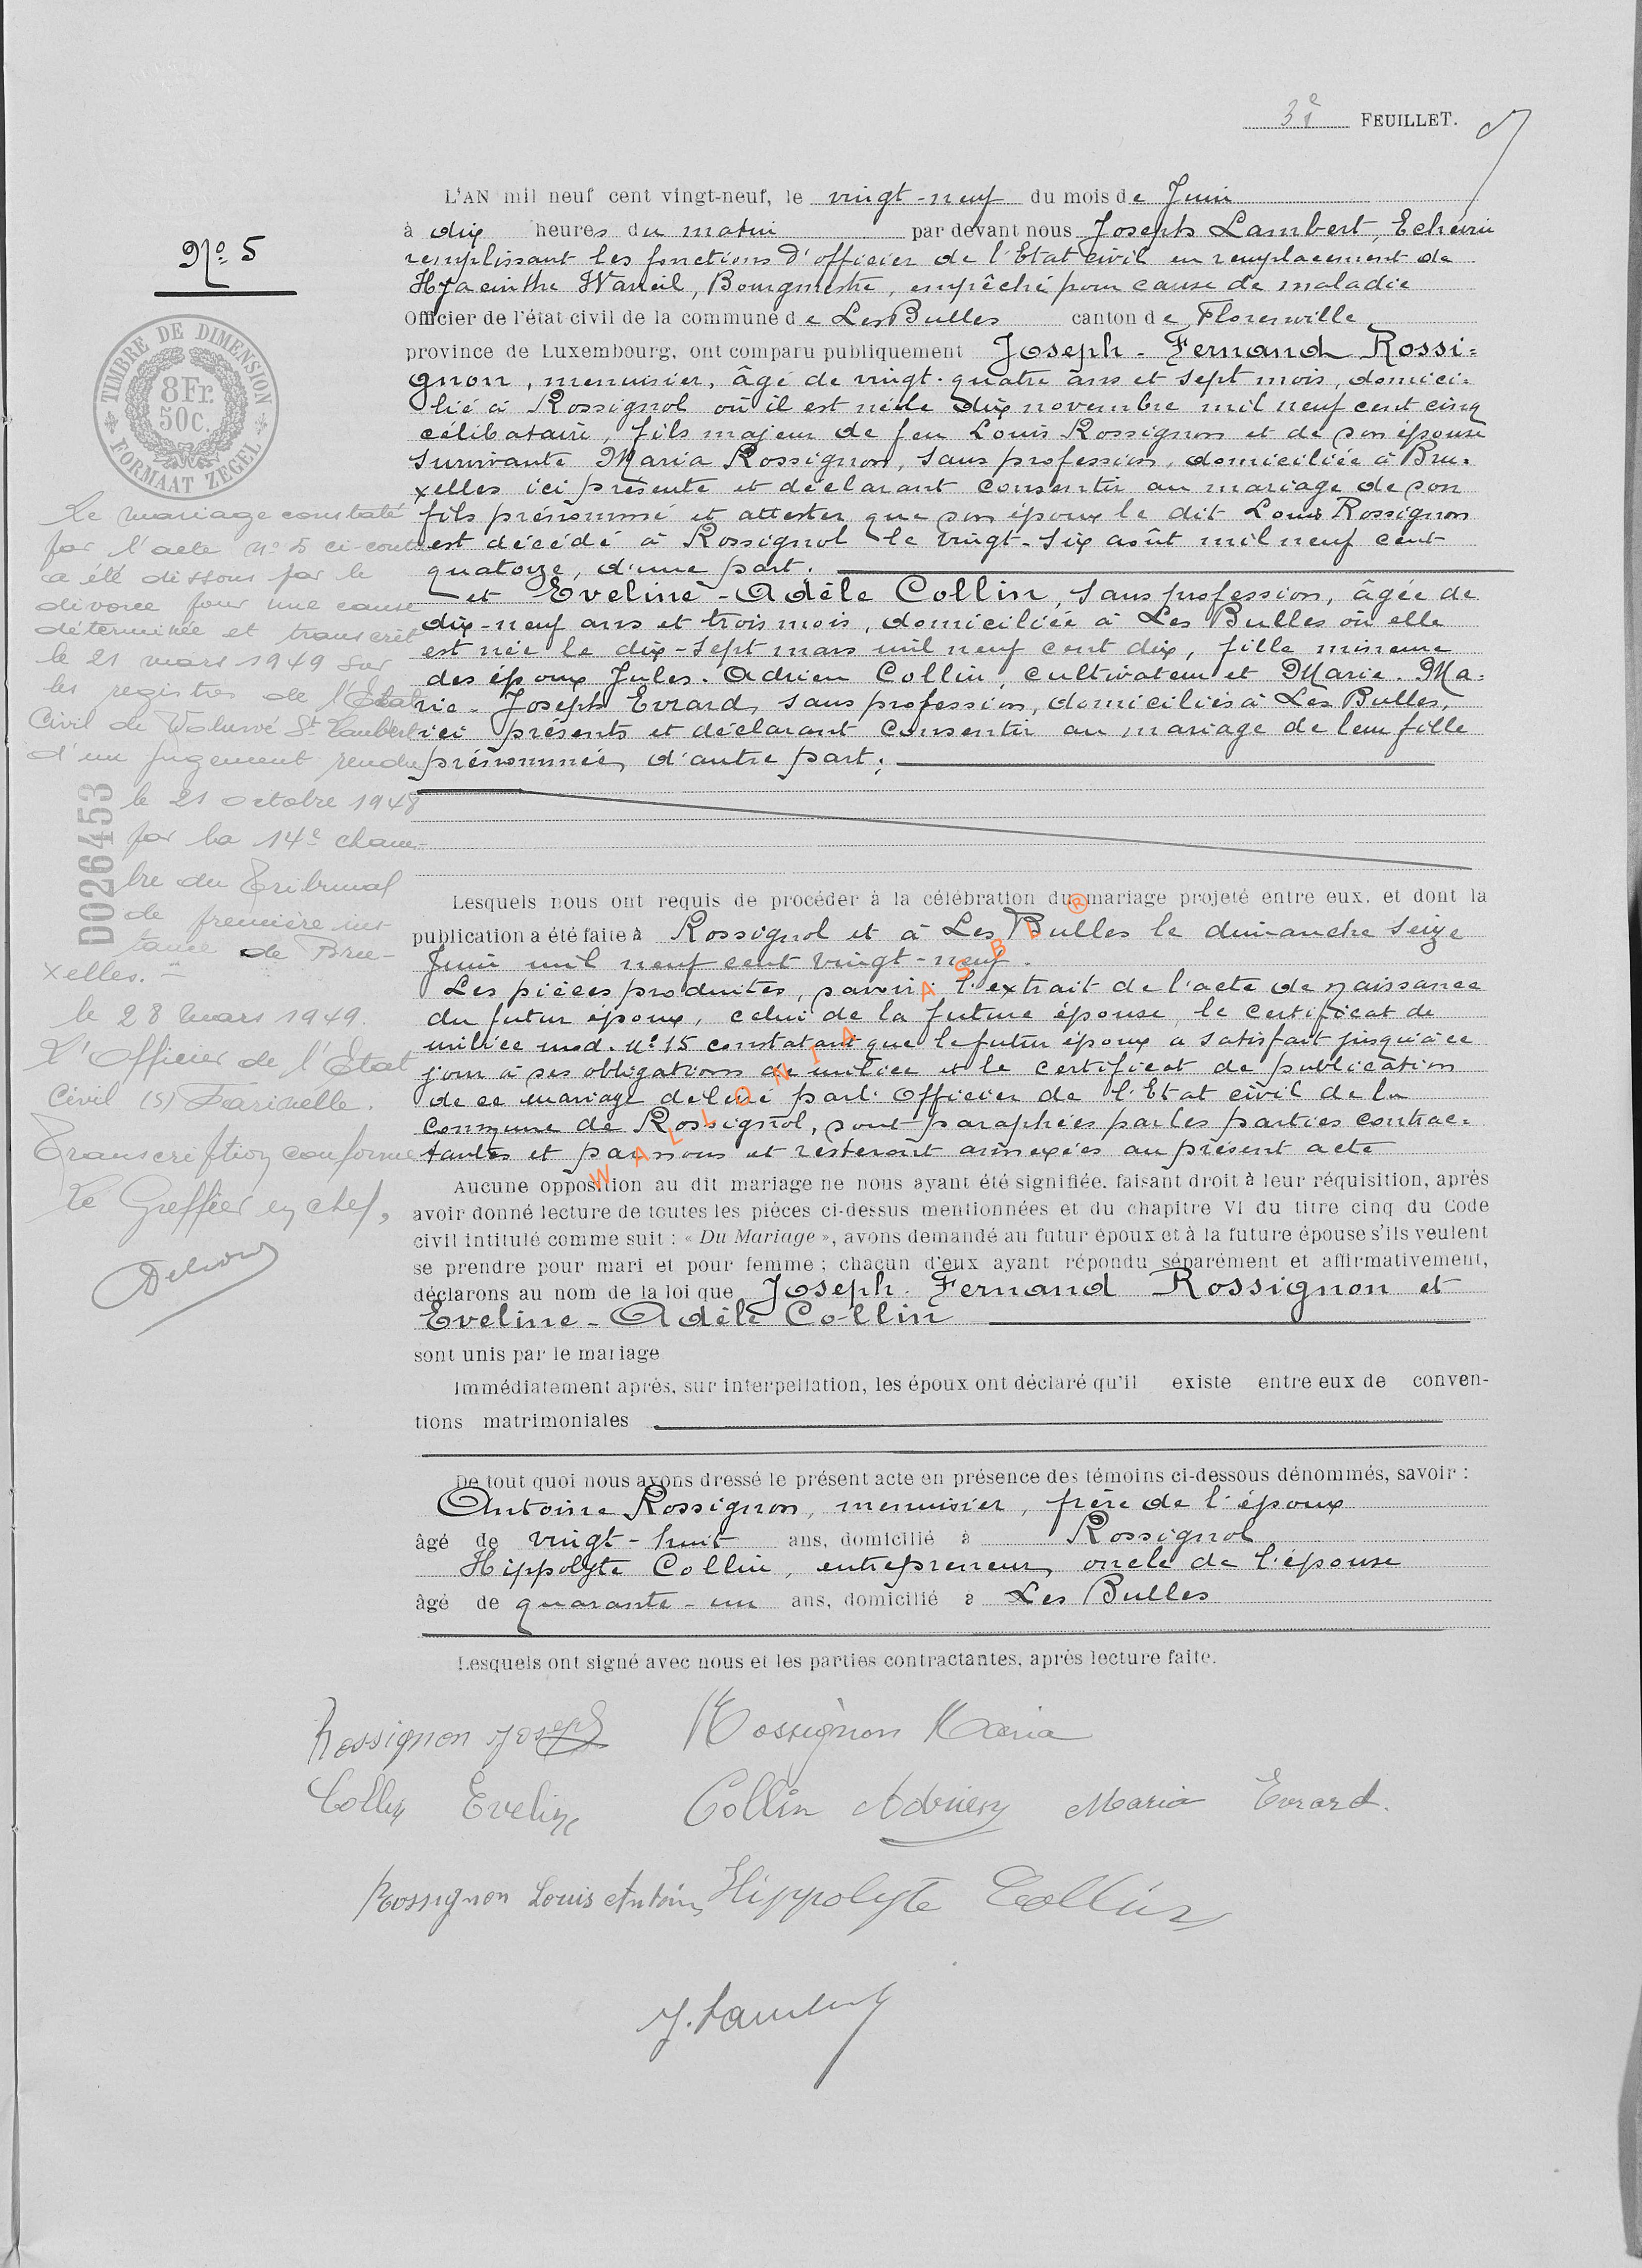 3e FEUILLET. 5
L'AN mil neuf cent vingt-neuf, le vingt-neuf du mois de Juin
à dix heures du matin par devant nous Joseph Lambert, Echevin
remplissant les fonctions d'officier de l'Etat civil en remplacement de
Hyacinthe Waneil, Bourgmestre, empêché pour cause de maladie
Officier de l'état civil de la commune de Les Bulles canton de Florenville
province de Luxembourg, ont comparu publiquement Joseph-Fernand Rossi=
gnon, menuisier, âgé de vingt-quatre ans et sept mois, domici=
lié à Rossignol où il est né le dix novembre mil neuf cent cinq
célibataire, fils majeur de feu Louis Rossignon et de son épouse
survivante Maria Rossignon, sans profession, domiciliée à Bru=
xelles ici présente et déclarant consentir au mariage de son
fils prénommé et attester que son époux le dit Louis Rossignon
est décédé à Rossignol le vingt-six août mil neuf cent
quatorze, d'une part.
et Eveline-Adèle Collin, sans profession, âgée de
dix-neuf ans et trois mois, domiciliée à Les Bulles où elle
est née le dix-sept mars mil neuf cent dix, fille mineure
des époux Jules-Adrien Collin, cultivateur et Marie-Ma=
rie-Joseph Evrard, sans profession, domiciliés à Les Bulles,
ici présents et déclarant consentir au mariage de leur fille
prénommée, d'autre part;
Lesquels nous ont requis de procéder à la célébration du mariage projeté entre eux, et dont la
publication a été faite à Rossignol et à Les Bulles le dimanche seize
Juin mil neuf cent vingt-neuf.
Les pièces produites, savoir: l'extrait de l'acte de naissance
du futur époux, celui de la future épouse, le certificat de
milice mod. No 15 constatant que le futur époux a satisfait jusqu'à ce
jour à ses obligations de milice et le certificat de publication
de ce mariage délivré par l'Officier de l'Etat civil de la
Commune de Rossignol, sont paraphées par les parties contrac=
tantes et par nous et resteront annexées au présent acte
Aucune opposition au dit mariage ne nous ayant été signifiée, faisant droit à leur réquisition, après
avoir donné lecture de toutes les pièces ci-dessus mentionnées et du chapitre VI du titre cinq du Code
civil intitulé comme suit : « Du Mariage », avons demandé au futur époux et à la future épouse s'ils veulent
se prendre pour mari et pour femme ; chacun d'eux ayant répondu séparément et affirmativement,
déclarons au nom de la loi que Joseph-Fernand Rossignon et
Eveline-Adèle Collin
sont unis par le mariage
Immédiatement après, sur interpellation, les époux ont déclaré qu'il existe entre eux de conven-
tions matrimoniales
De tout quoi nous avons dressé le présent acte en présence des témoins ci-dessous dénommés, savoir :
Antoine Rossignon, menuisier, frère de l'époux
âgé de vingt-huit ans, domicilié à Rossignol
Hippolyte Collin, entrepreneur, oncle de l'épouse
âgé de quarante-un ans, domicilié à Les Bulles
Lesquels ont signé avec nous et les parties contractantes, après lecture faite.
Rossignon Joseph Rossignon Maria
Collin Eveline Collin Adrien Maria Evrard.
Rossignon Louis Antoine Hippolyte Collin
J. Lambert
No 5
TIMBRE DE DIMENSION
8Fr.
50c.
FORMAAT ZEGEL
Le mariage constaté
par l'acte No 5 ci-contre
a été dissous par le
divorce pour une cause
déterminée et transcrit
le 21 mars 1949 sur
les registres de l'Etat
Civil de Woluwé St Lambert
d'un jugement rendu
le 21 octobre 1948
par la 14e cham-
bre du Tribunal
de première ins-
tance de Bru-
xelles.
le 28 Mars 1949.
L'Officier de l'Etat
Civil (S)
Transcription conforme
Le Greffier en chef,
D026453
WALLONIA ASBL ®